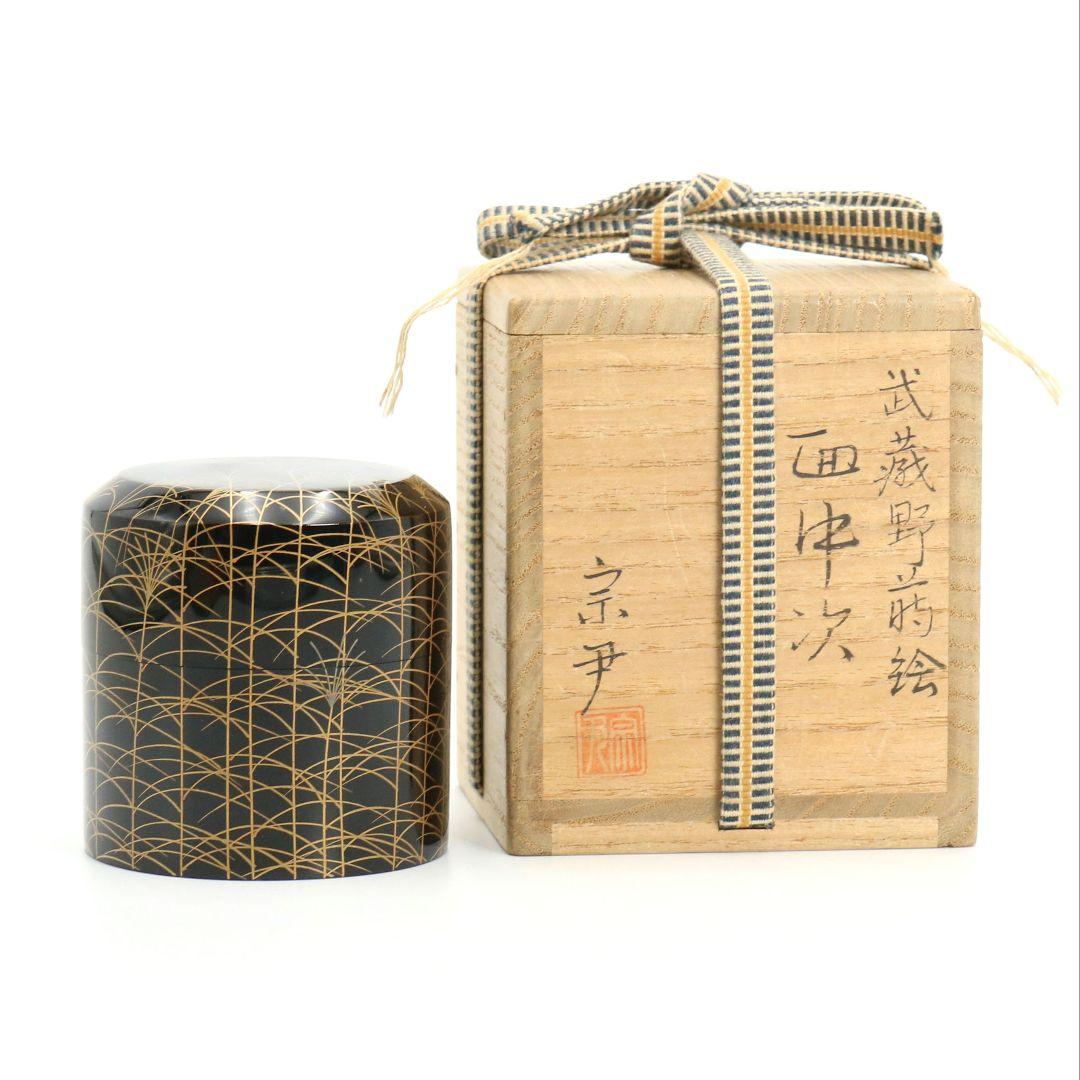 武蔵野蒔絵
面中次
宗尹